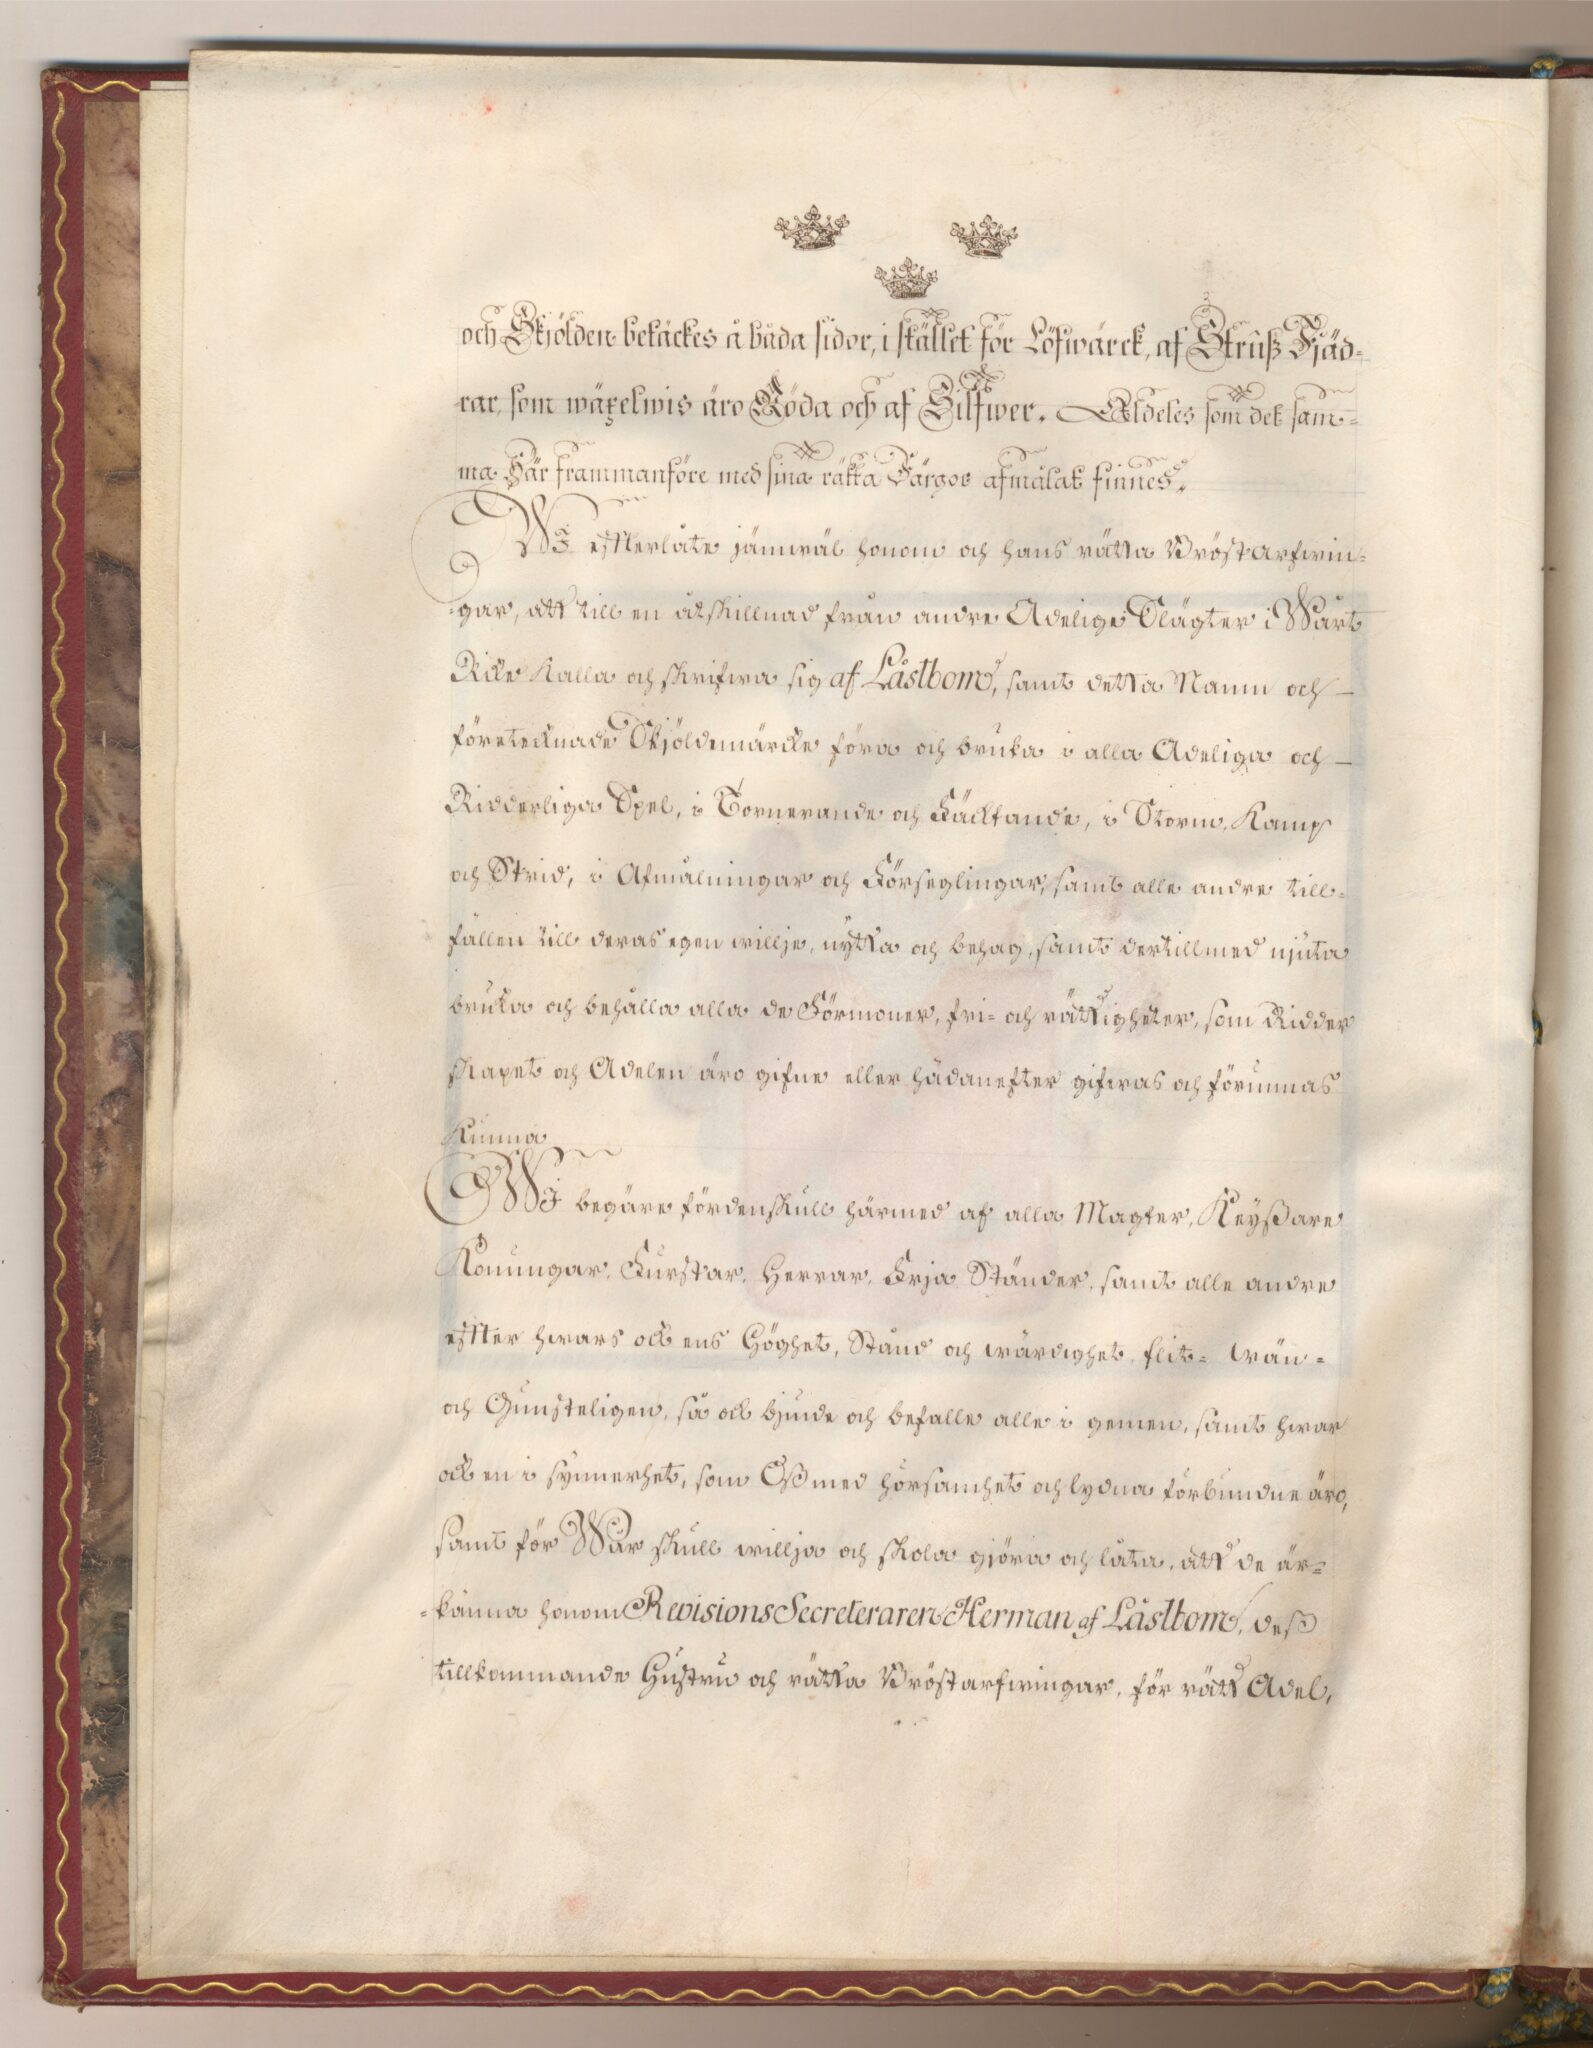 och Skjölden betäckes å båda sidor, i stället för Löfwärck, af Strüß Fjäd-
rar, som wäxelwis äro Röda och af Silfwer. Aldeles som det sam-
ma här frammanföre med sina rätta Färgor afmålat finnes.
Wj effterlåte jämwäl honom och hans rätta Bröstarfwin-
-gar, att till en åtskillnad från andre Adelige Slägter i Wårt
Rike kalla och skrifwa sig af Låstbom, samt detta Namn och
företecknade Skjöldemärcke föra och bruka i alla Adeliga och
Ridderliga Spel, i Tornerande och Fäcktande, i Storm, Kamp
och Strid, i Afmålningar och Förseglingar, samt alle andre till-
fällen till deras egen willje, nytta och behag, samt dertillmed njuta
bruka och behålla alla de Förmoner, fri- och rättigheter, som Ridder
skapet och Adelen äro gifne eller hädanefter gifwas och förunnas
kunna
Wj begäre fördenskull härmed af alla Magter, Keyßare
Konungar, Furstar, Herrar, Frja Ständer, samt alle andre
effter hwars ock ens Höghet, Stånd och wärdighet, flit- wän-
och Gunsteligen, så ock bjude och befalle alle i gemen, samt hwar
ock en i synnerhet, som Oß med hörsamhet och lydna förbundne äro,
samt för Wår skull willja och skola gjöra och låta, att de är-
-känna honom Revisions Secreteraren Herman af Låstbom, deß
tillkommande Hustru och rätta Bröstarfwingar, för rätt Adel,